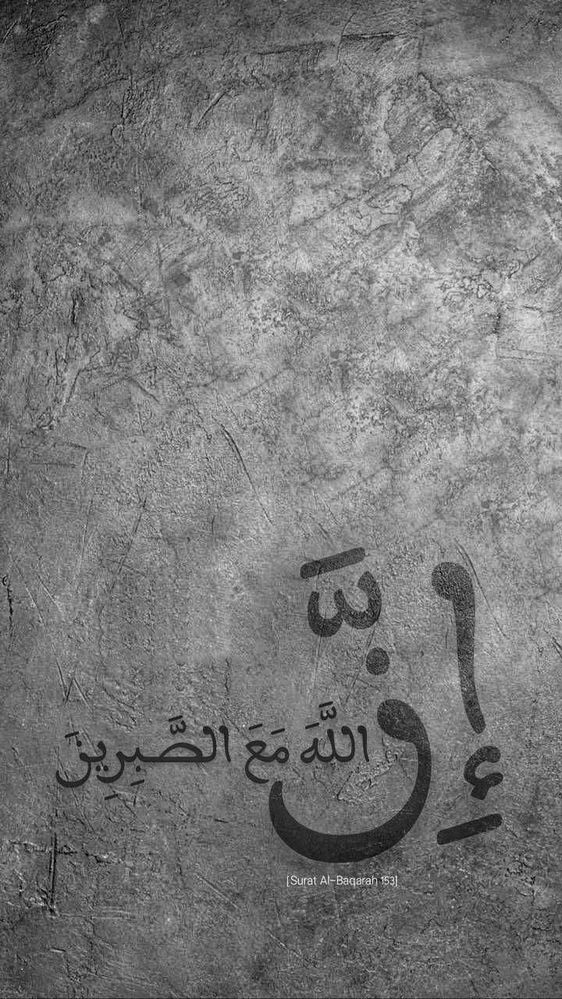 إِنَّ اللَّهَ مَعَ الصَّبِرِينَ
[Surat Al-Baqarah 153]